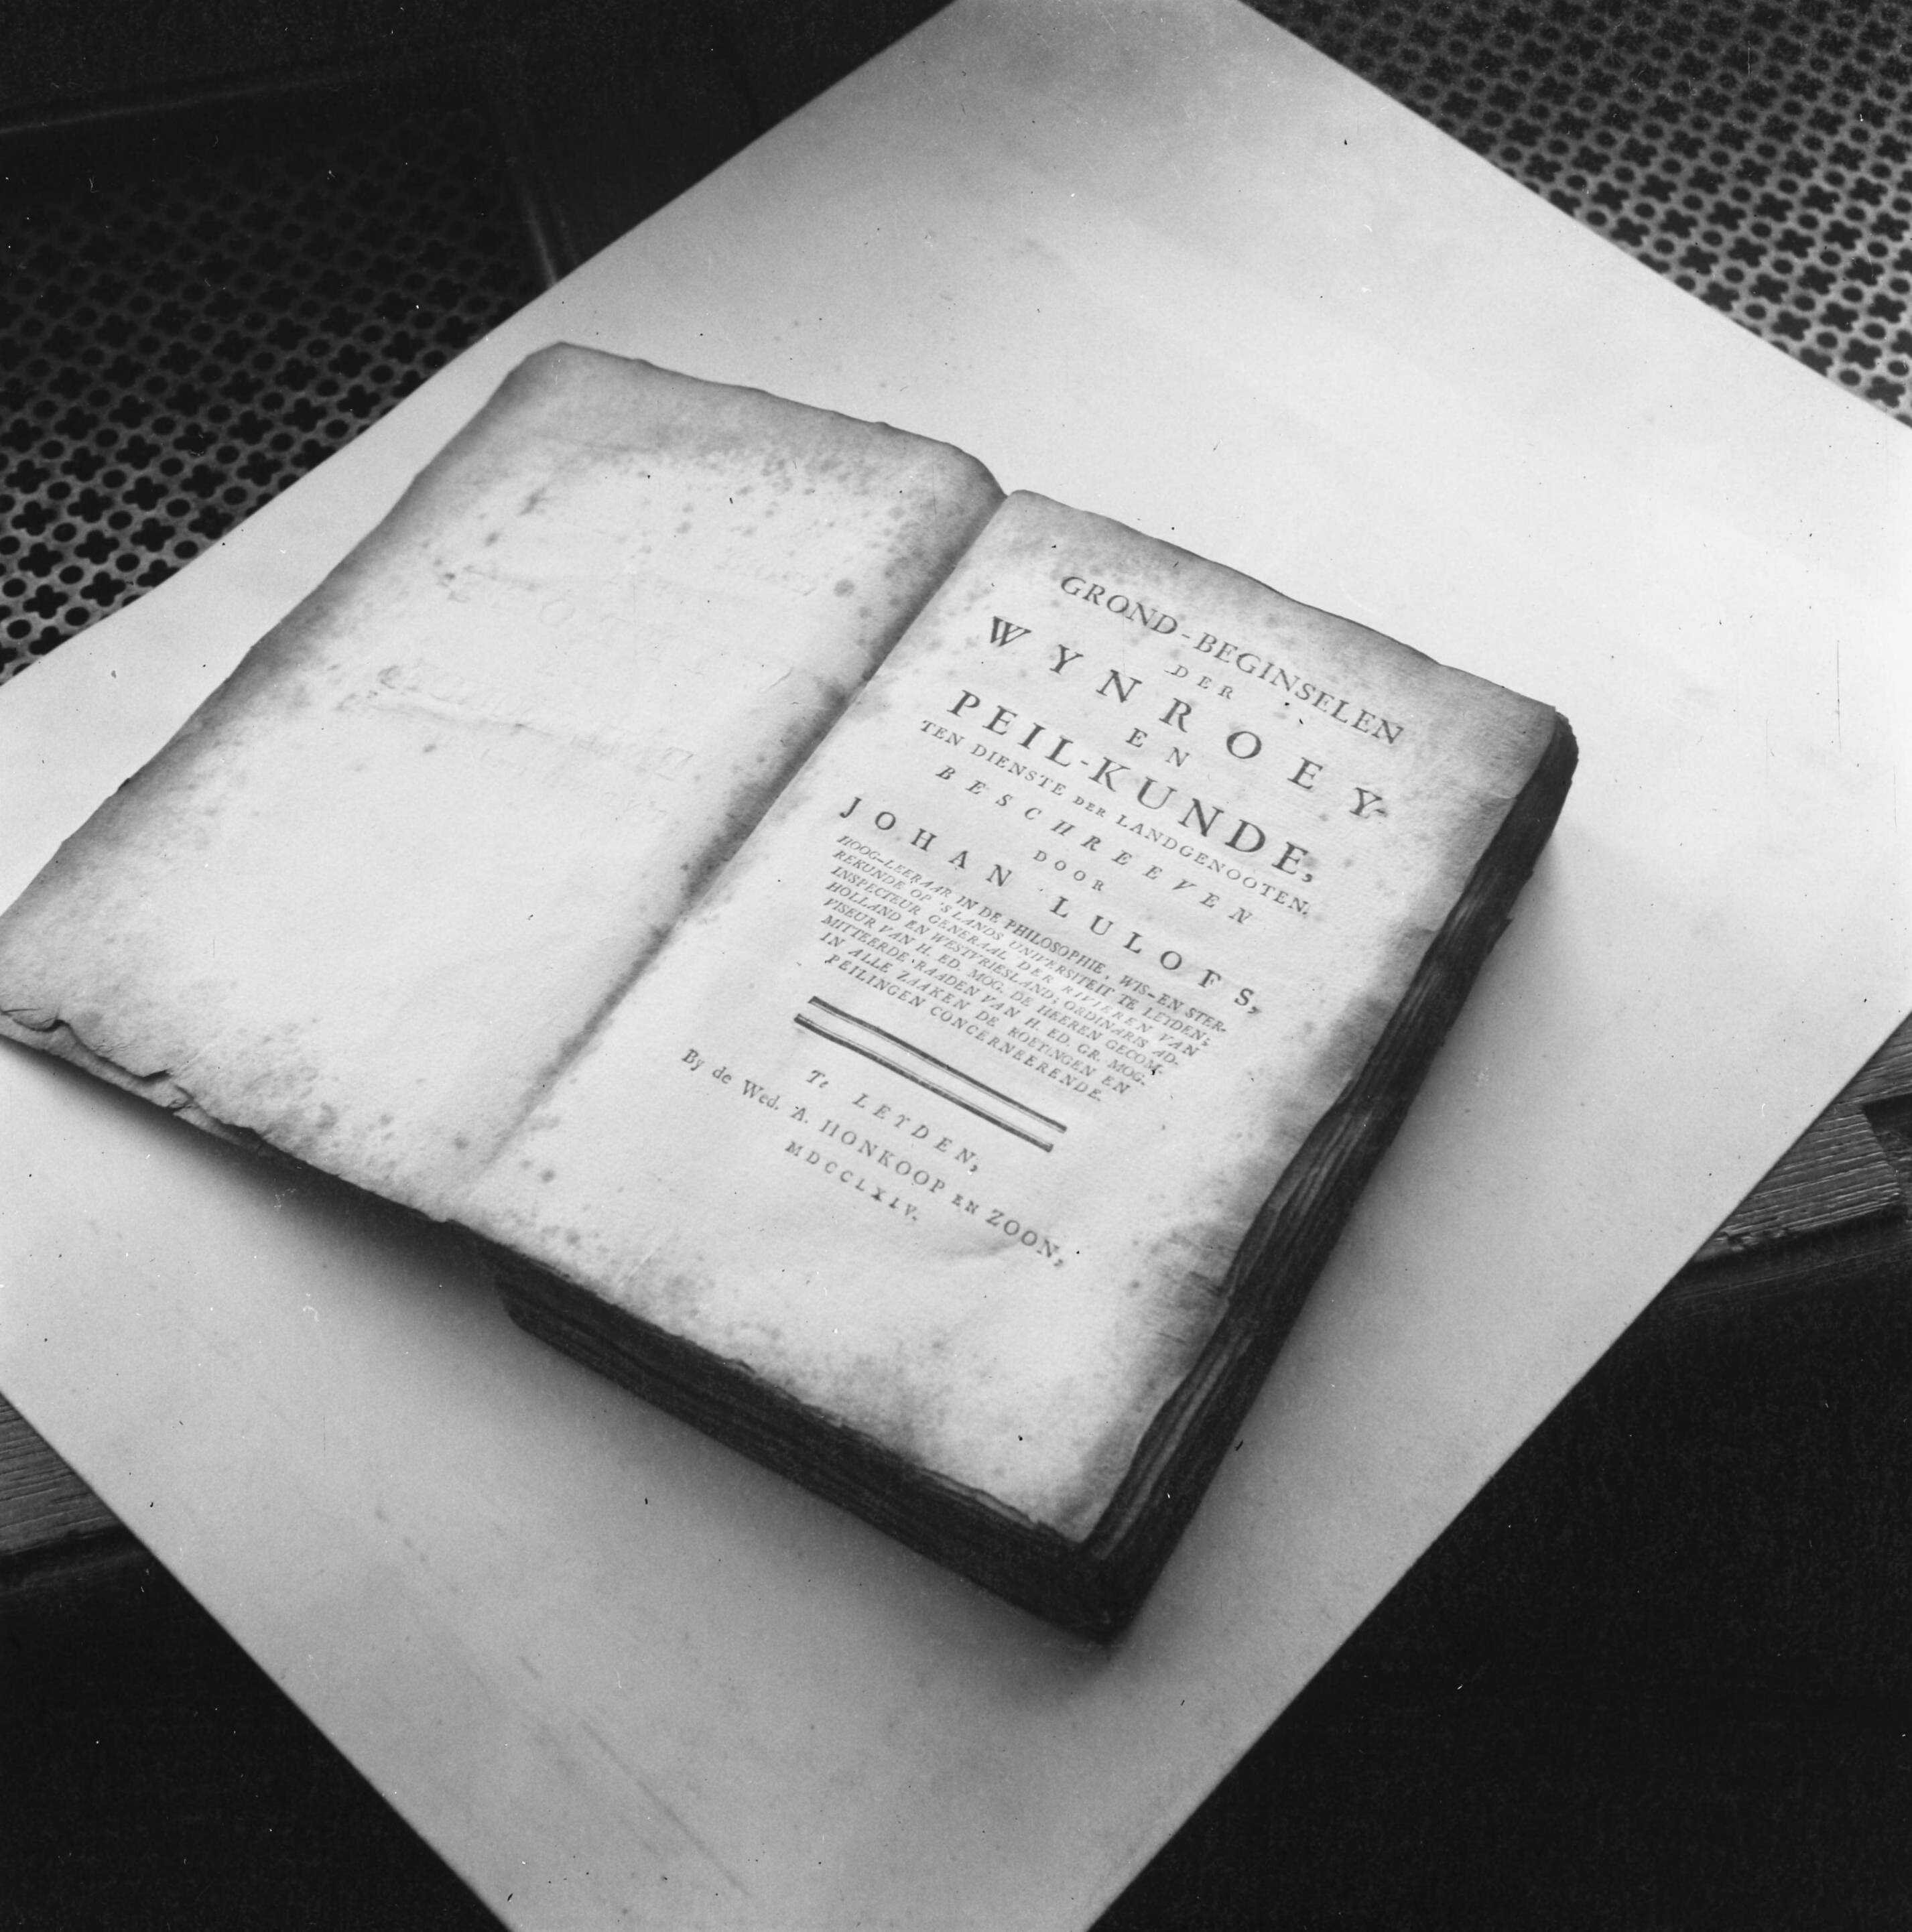 GROND-BEGINSELEN
DER
WYNROEY-
EN
PEIL-KUNDE,
TEN DIENSTE DER LANDGENOOTEN.
BESCHREEVEN
DOOR
JOHAN LULOFS,
HOOG-LEERAAR IN DE PHILOSOPHIE, WIS-EN STER-
REKUNDE OP 'S LANDS UNIVERSITEIT TE LEIDEN;
INSPECTEUR GENERAAL DER RIVIEREN VAN
HOLLAND EN WESTVRIESLAND; ORDINARIS AD-
VISEUR VAN H. ED. MOG. DE HEEREN GECOM-
MITTEERDE RAADEN VAN H. ED. GR. MOG.
IN ALLE ZAAKEN DE ROETINGEN EN
PEILINGEN CONCERNEERENDE.
Te LEYDEN,
By de Wed. A. HONKOOP EN ZOON,
MDCCLXIV.